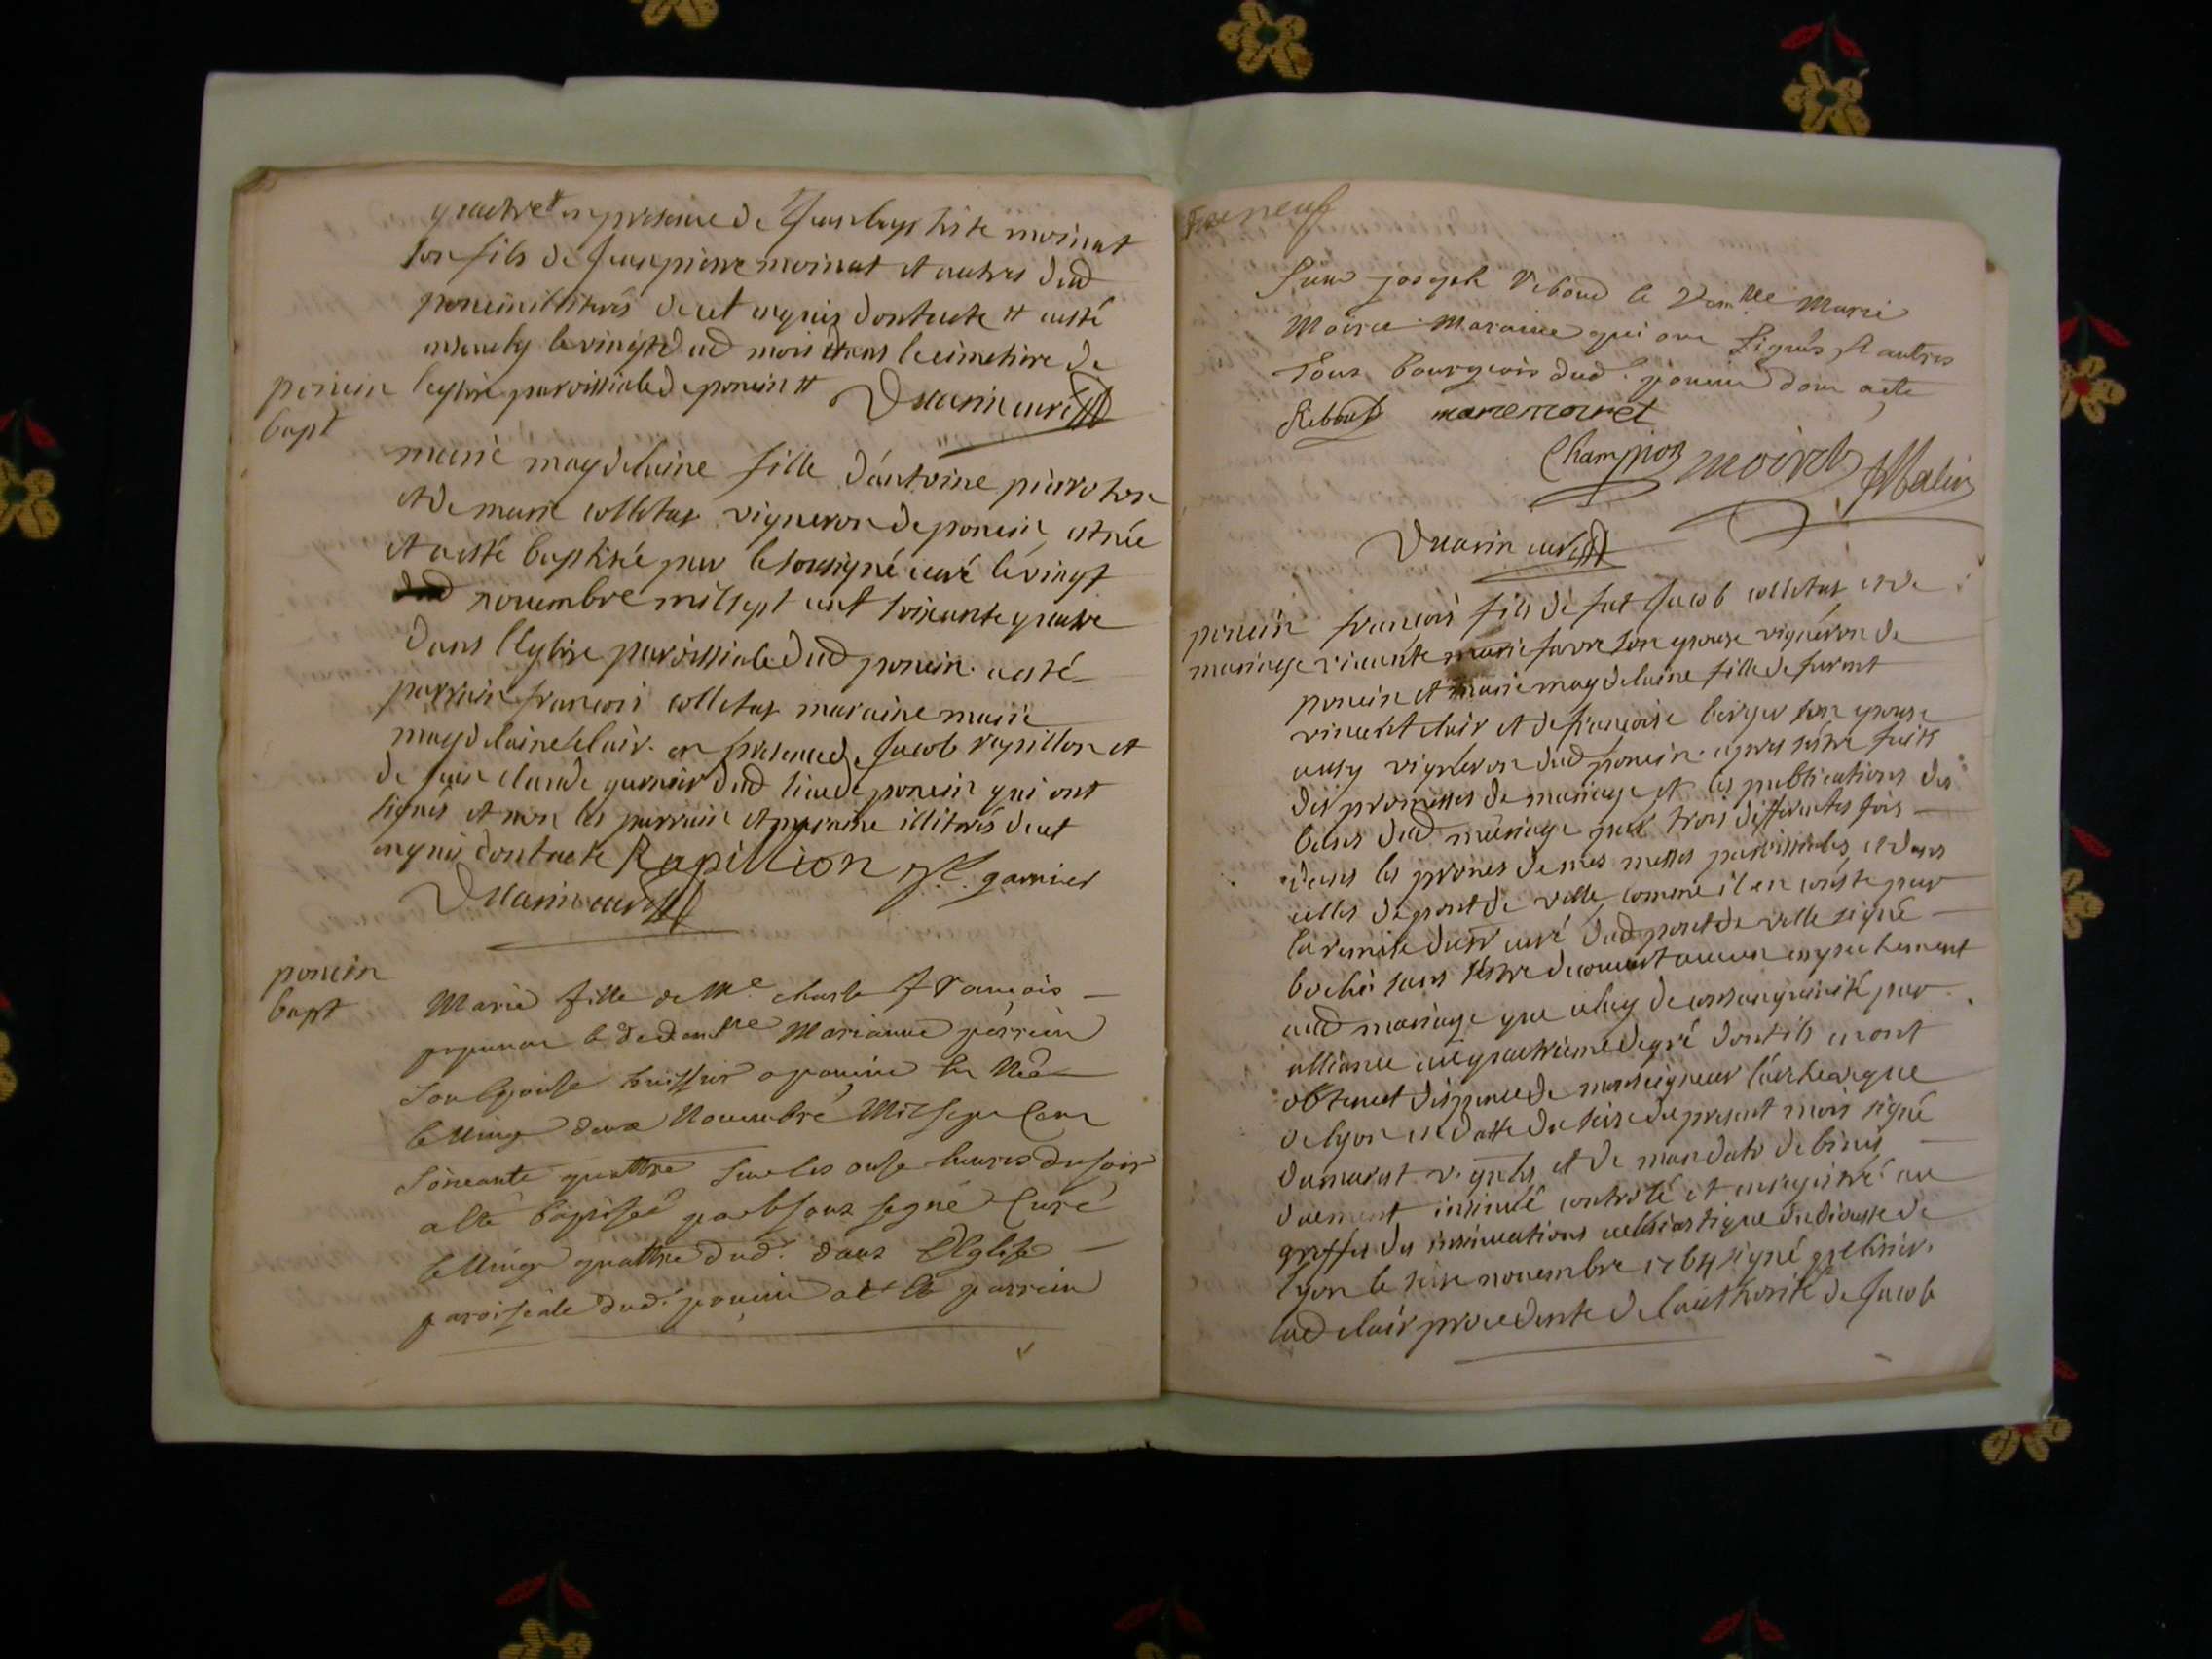 quattre en presence de Jean baptiste moinat
son fils de Jean pierre moinat et autres dud
poncin illiterés de ce enquis dont acte # a esté
enseuely le vingt dud mois dans le cimetiere de
l'eglise paroissiale de poncin #
poncin
bapt
marie magdelaine fille d'antoine
et de marie colletaz vigneron de poncin, est née
et a esté baptisée par le sousigné curé le vingt
novembre mil sept cent soixante quatre
dans l'Eglise paroissiale dud poncin. a esté
parrain francois colletaz maraine marie
magdelaine clair. en presence de Jacob rapillon et
de Jean claude garnier dud lieu de poncin qui ont
signés et non les parrain et maraine illiterés de ce
enquis dont acte Rapillion J.C. garnier
poncin
bapt
Marie fille de Me charle francois
et de dem.lle Marianne perrein
son Epouse huissier a poncin Est Née
le Vingt deux Novembre Mil sept Cent
soixante quattre sur les onse heures du soir
a Eté baptisée par le sous signé Curé
le Vingt quattre dud. dans l'Eglise
paroisiale dud. poncin a eté parrein
feuil neuf
Sieur joseph Reboud et Dem.lle Marie
Moiret Maraine qui ont signés Et autres
Tous bourgeois dud. poncin dont acte
Reboud marie moiret
Champion moiret
poncin
mariage
francois fils de fut Jacob colletaz et de
vivante marie favre son epouse vigneron de
poncin et marie magdelaine fille de furent
vincent clair et de francoise berger son epouse
aussy vigneron dud poncin. apres s'estre faits
des promesses de mariage et les publications des
bans dud mariage par trois differentes fois
dans les prones de mes messes paroissiales, et dans
celles de pont de velle, comme il en conste par
la remise du sr curé dud pont de velle signé
bochi sans s'estre decouvert aucun empechement
aud mariage que celuy de consanguinité par
alliance au quatrieme degré dont ils en ont
obtenut dispence de monseigneur l'archeveque
de lyon en datte du seise du present mois signé
et de mandato de
duement insinué controlé et enregistré au
greffes des insinuations ecclesiastique du diocese de
lyon le seise novembre 1764 signé
lad clair procedente de l'authorité de Jacob